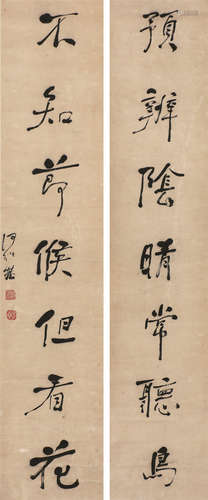 預辨陰晴常聽鳥
不知節候但看花
何紹基